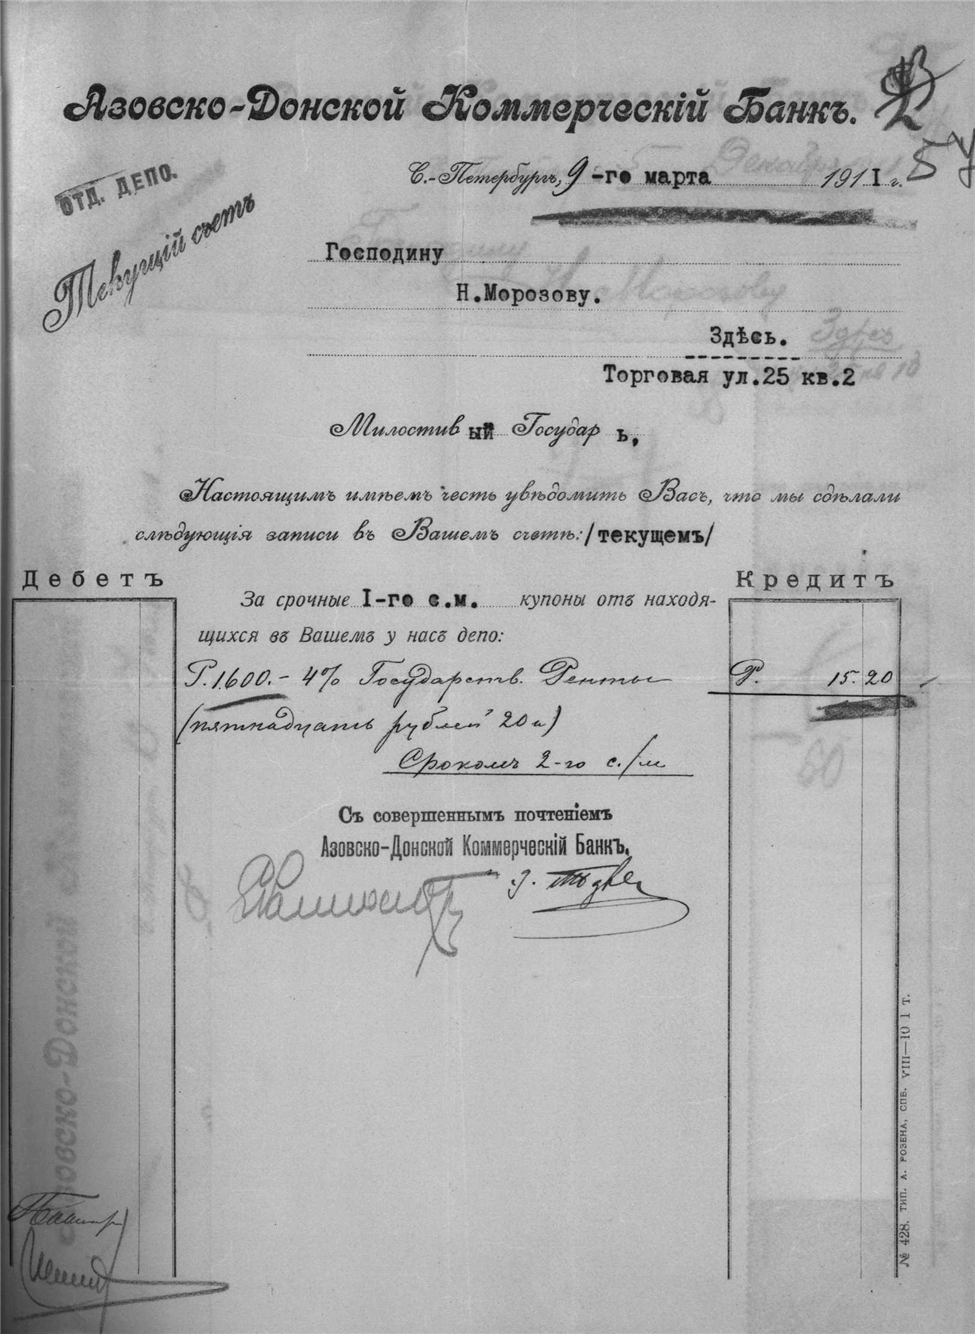 Азовско-Донской Коммерческій Банкъ.
54
С.-Петербургъ, 9-го марта 1911 г.
ОТД. ДЕПО.
Текущій счетъ
Господину
Н.Морозову.
Здѣсь.
Торговая ул.25 кв.2
Милостивый Государь,
Настоящимъ имѣемъ честь увѣдомить Васъ, что мы сдѣлали
слѣдующія записи въ Вашемъ счетѣ:/текущемъ/
Дебетъ
Кредитъ
За срочные I-го с.м. купоны отъ находя-
щихся въ Вашемъ у насъ депо:
Р.1600.- 4% Государств. Ренты Р. 15.20
(пятнадцать рублей 20 к)
Срокомъ 2-го с./м
Съ совершеннымъ почтеніемъ
Азовско-Донской Коммерческій Банкъ.
№ 428. ТИП. А. РОЗЕНА, СПБ. VIII—10 1 т.